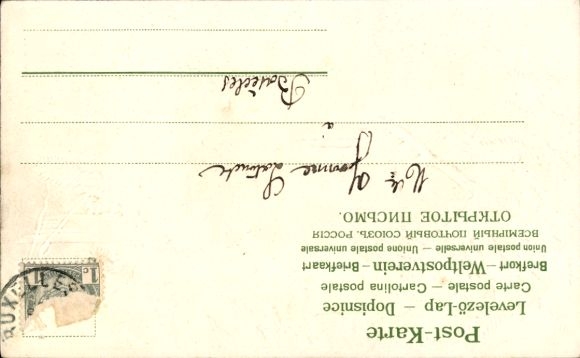 Post-Karte
Levelező-Lap — Dopisnice
Carte postale — Cartolina postale
Brefkort — Weltpostverein — Briefkaart
Union postale universelle — Unione postale universale
ВСЕМІРНЫЙ ПОЧТОВЫЙ СОЮЗЪ. РОССІЯ
ОТКРЫТОЕ ПИСЬМО.
1c
UXELLES
Mlle Yvonne
à
Basècles